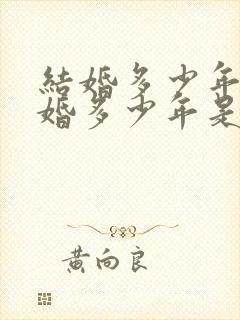 結婚多少年
婚多少年是
黄向良